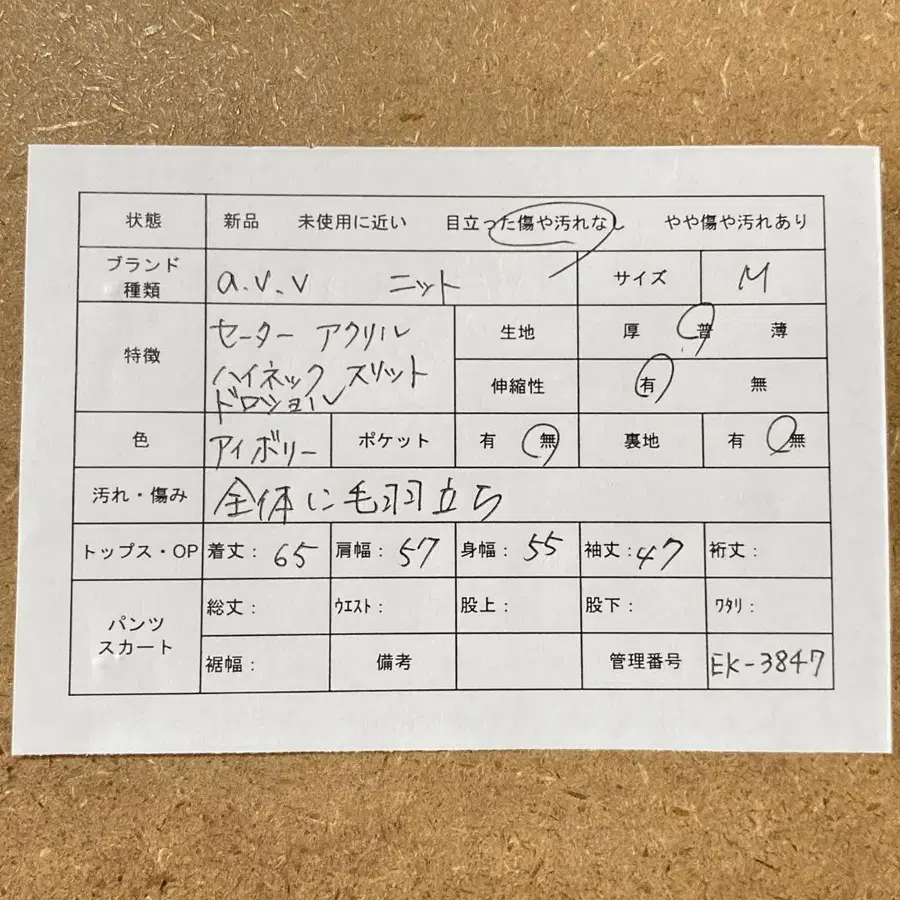 状態 新品 未使用に近い 目立った傷や汚れなし やや傷や汚れあり
ブランド 種類 a.v.v ニット サイズ M
特徴 セーター アクリル
ハイネック スリット
ドロショル
生地 厚 普 薄
伸縮性 有 無
色 アイボリー ポケット 有 無 裏地 有 無
汚れ・傷み 全体に毛羽立ち
トップス・OP 着丈： 65 肩幅： 57 身幅： 55 袖丈： 47 裄丈：
パンツ スカート 総丈： ウエスト： 股上： 股下： ワタリ：
裾幅： 備考 管理番号 EK-3847